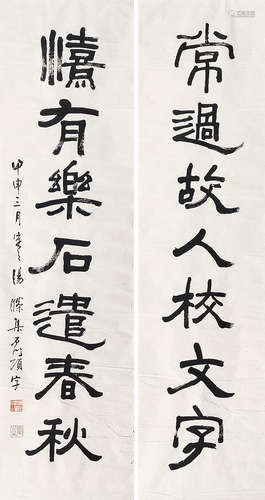 常過故人校文字
憙有樂石遣春秋
甲申三月